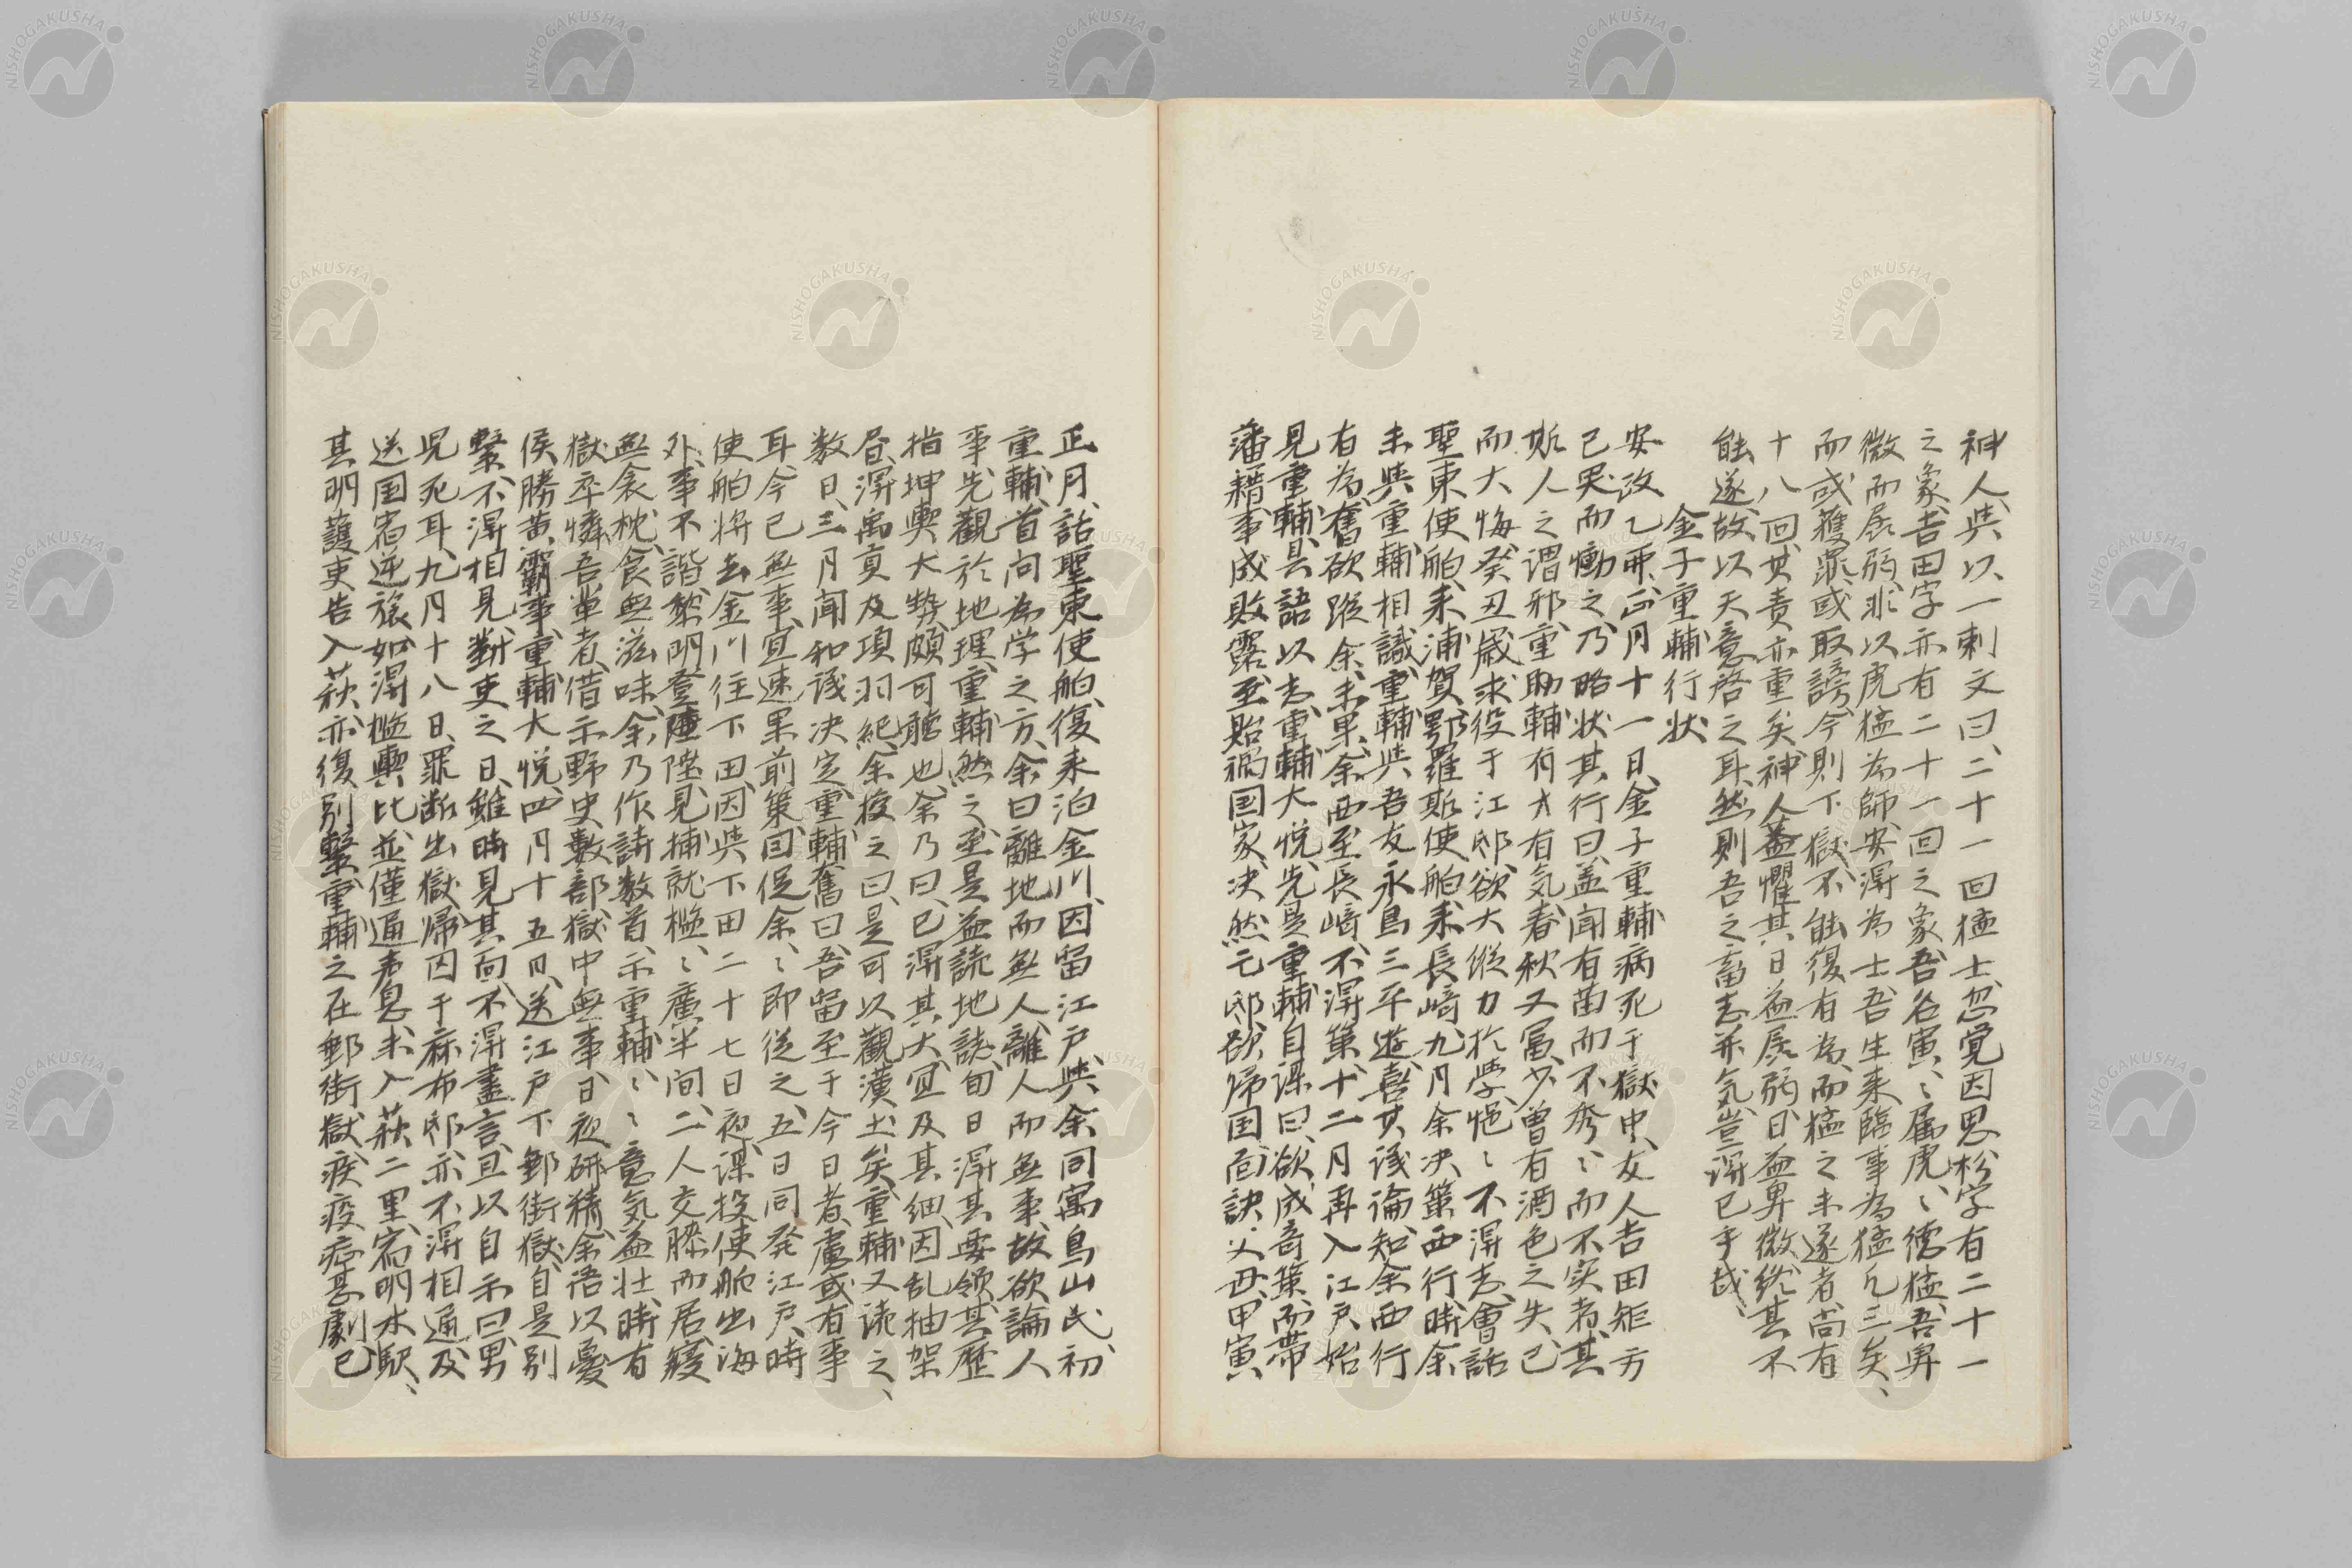 神人、與以一刺文曰、二十一回猛士、忽覚因思杉字有二十一
之象、吉田字亦有二十一回之象、吾名寅、〻属虎、〻徳猛、吾卑
微而孱弱、非以虎猛為師、安得為士、吾生来臨事為猛凡三矣、
而或獲罪、或取謗、今則下獄、不能復有為、而猛之未遂者、尚有
十八回、其責亦重矣、神人蓋懼其日益孱弱、日益卑微、終其不
能遂、故以天意啓之耳、然則吾之蓄志并気、豈得已乎哉、
金子重輔行状
安政乙卯、正月十一日、金子重輔病死于獄中、友人吉田矩方
已哭而慟之、乃略状其行曰、蓋聞有苗而不秀、〻而不实者、其
斯人之謂邪、重助輔有才有気、春秋又冨、少曾有酒色之失、已
而大悔、癸丑歳求役于江邸、欲大縦力於学、悒〻不得志、會話
聖東使舶、来浦賀、鄂羅斯使舶来長崎、九月余决策西行、時余
未與重輔相識、重輔與吾友永鳥三平遊、喜其議論、知余西行
有為、奮欲蹤余、未果、余西至長崎、不得策、十二月再入江戸、始
見重輔、具語以志、重輔大悦、先是重輔自謀曰、欲成奇策、而帯
藩籍、事成敗露、至貽禍国家、决然亡邸、欲帰国面訣父母、甲寅
正月、話聖東使舶、復来泊金川、因留江戸、與余同寓鳥山氏、初
重輔、首問為学之方、余曰離地而無人、離人而無事、故欲論人
事、先觀於地理、重輔然之、至是益読地誌、旬日得其要領、其歴
指坤輿大勢、頗可聴也、余乃曰、已得其大、宜及其細、因乱抽架
昼、得禹貢及項羽紀、余授之曰、是可以觀漢土矣、重輔又読之、
数日、三月聞和議决定、重輔奮曰、吾留至于今日者、慮或有事
耳、今已無事、宜速果前策、囙促余、〻即従之、五日同発江戸、時
使舶将去金川往下田、因與下田二十七日夜、謀投使舶出海
外、事不諧、黎明登陸陸見捕、就檻、〻廣半间、二人交膝而居、寝
無衾枕、食無滋味、余乃作詩数首、示重輔、〻〻意気益壮、時有
獄卒憐吾輩者、借示野史數部、獄中無事、日夜研精、余語以憂
侯勝黄霸事、重輔大悦、四月十五日、送江戸下郵街獄、自是別
繋、不得相見、對吏之日、雖時見其面、不得盡言、且以自示曰、男
児死耳、九月十八日、罪断出獄、帰囚于麻布邸、亦不得相通、及
送国宿逆旅、如得檻輿比並、僅通声息、未入萩二里、宿明木駅、〻
其明護吏告入萩、亦復別繋重輔之在郵街獄、疾疫瘧甚劇、已